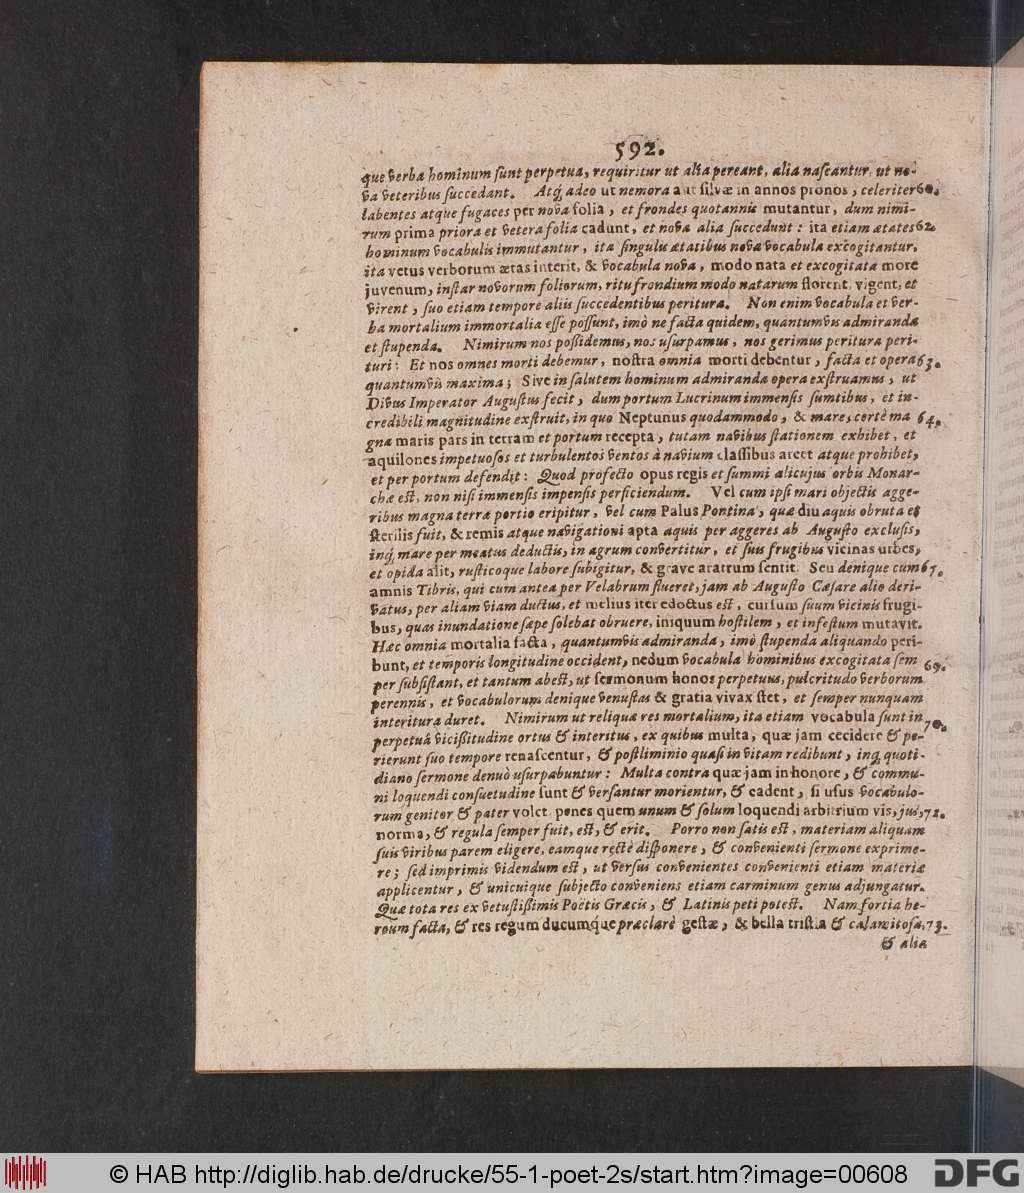 592.
que verba hominum sunt perpetua, requiritur ut alia pereant, alia nascantur, ut no-
va veteribus succedant. Atq; adeo ut nemora aut silvæ in annos pronos, celeriter 60.
labentes atque fugaces per nova folia, et frondes quotannis mutantur, dum nimi-
rum prima priora et vetera folia cadunt, et nova alia succedunt: ita etiam ætates 62.
hominum vocabulis immutantur, ita singulis ætatibus nova vocabula excogitantur,
ita vetus verborum ætas interit, & vocabula nova, modo nata et excogitata more
juvenum, instar novorum foliorum, ritu frondium modo natarum florent, vigent, et
virent, suo etiam tempore aliis succedentibus peritura. Non enim vocabula et ver-
ba mortalium immortalia esse possunt, imò ne facta quidem, quantumvis admiranda
et stupenda. Nimirum nos possidemus, nos usurpamus, nos gerimus peritura peri-
turi: Et nos omnes morti debemur, nostra omnia morti debentur, facta et opera 63.
quantumvis maxima; Sive in salutem hominum admiranda opera exstruamus, ut
Divus Imperator Augustus fecit, dum portum Lucrinum immensis sumtibus, et in-
credibili magnitudine exstruit, in quo Neptunus quodammodo, & mare, certè ma 64.
gna maris pars in terram et portum recepta, tutam navibus stationem exhibet, et
aquilones impetuosos et turbulentos ventos à navium classibus arcet atque prohibet,
et per portum defendit: Quod profecto opus regis et summi alicujus orbis Monar-
chæ est, non nisi immensis impensis perficiendum. Vel cum ipsi mari objectis agge-
ribus magna terræ portio eripitur, vel cum Palus Pontina, quæ diu aquis obruta et
sterilis fuit, & remis atque navigationi apta aquis per aggeres ab Augusto exclusis,
inq; mare per meatus deductis, in agrum convertitur, et suis frugibus vicinas urbes,
et opida alit, rusticoque labore subigitur, & grave aratrum sentit. Seu denique cum 67.
amnis Tibris, qui cum antea per Velabrum flueret, jam ab Augusto Cæsare alio deri-
vatus, per aliam viam ductus, et melius iter edoctus est, cursum suum vicinis frugi-
bus, quas inundatione sæpe solebat obruere, iniquum hostilem, et infestum mutavit.
Hæc omnia mortalia facta, quantumvis admiranda, imò stupenda aliquando peri-
bunt, et temporis longitudine occident, nedum vocabula hominibus excogitata sem 69.
per subsistant, et tantum abest, ut sermonum honos perpetuus, pulcritudo verborum
perennis, et vocabulorum denique venustas & gratia vivax stet, et semper nunquam
interitura duret. Nimirum ut reliquæ res mortalium, ita etiam vocabula sunt in 70.
perpetuâ vicissitudine ortus & interitus, ex quibus multa, quæ jam cecidere & pe-
rierunt suo tempore renascentur, & postliminio quasi in vitam redibunt, inq; quoti-
diano sermone denuò usurpabuntur: Multa contra quæ jam in honore, & commu-
ni loquendi consuetudine sunt & versantur morientur, & cadent, si usus vocabulo-
rum genitor & pater volet, penes quem unum & solum loquendi arbitrium vis, jus, 72.
norma, & regula semper fuit, est, & erit. Porro non satis est, materiam aliquam
suis viribus parem eligere, eamque rectè disponere, & convenienti sermone exprime-
re; sed imprimis videndum est, ut versus convenientes convenienti etiam materiæ
applicentur, & unicuique subjecto conveniens etiam carminum genus adjungatur.
Quæ tota res ex vetustissimis Poëtis Græcis, & Latinis peti potest. Nam fortia he-
roum facta, & res regum ducumque præclarè gestæ, & bella tristia & calamitosa, 73.
& alia
© HAB http://diglib.hab.de/drucke/55-1-poet-2s/start.htm?image=00608
DFG